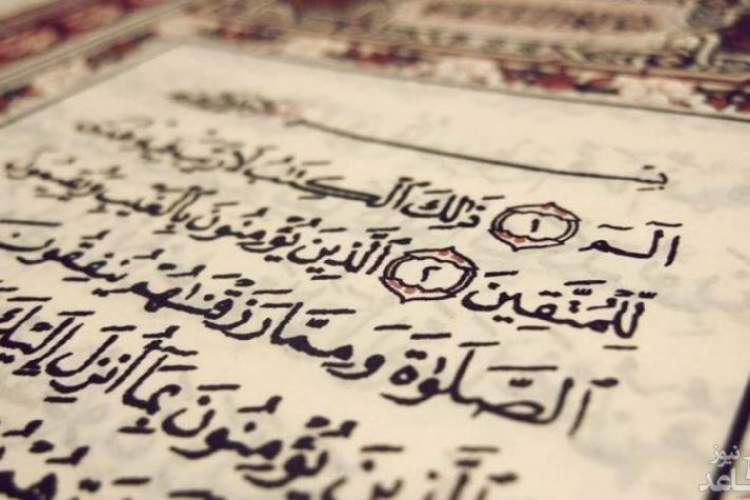 الٓمٓ ١ ذَٰلِكَ ٱلْكِتَٰبُ لَا رَيْبَ فِيهِ هُدًى
لِّلْمُتَّقِينَ ٢ ٱلَّذِينَ يُؤْمِنُونَ بِٱلْغَيْبِ وَيُقِيمُونَ
ٱلصَّلَوٰةَ وَمِمَّا رَزَقْنَٰهُمْ يُنفِقُونَ
وَٱلَّذِينَ يُؤْمِنُونَ بِمَآ أُنزِلَ إِلَيْكَ
نیوز